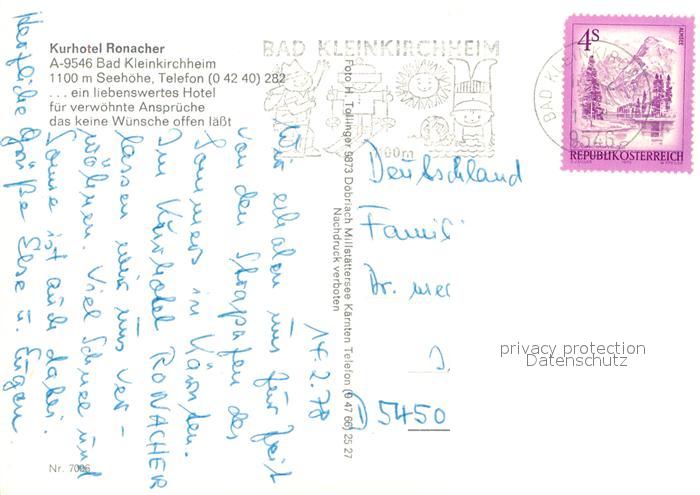 Kurhotel Ronacher
A-9546 Bad Kleinkirchheim
1100 m Seehöhe, Telefon (0 42 40) 282
... ein liebenswertes Hotel
für verwöhnte Ansprüche
das keine Wünsche offen läßt
BAD KLEINKIRCHHEIM
BAD KLEINKIRCHHEIM
9546
4S
ALMSEE
REPUBLIK ÖSTERREICH
14.2.78
Wir erholen uns für Zeit
von den Strapazen des
Sommers in Kärnten.
Im Kurhotel RONACHER
lassen wir uns ver-
wöhnen. Viel Schnee und
Sonne ist auch dabei.
Herzliche Grüße Else u. Eugen.
Foto H. Tollinger 9873 Döbriach Millstättersee Kärnten Telefon (0 47 66) 25 27
Nachdruck verboten
Deutschland
Famil
Dr. med
D 5450
privacy protection
Datenschutz
Nr. 7006